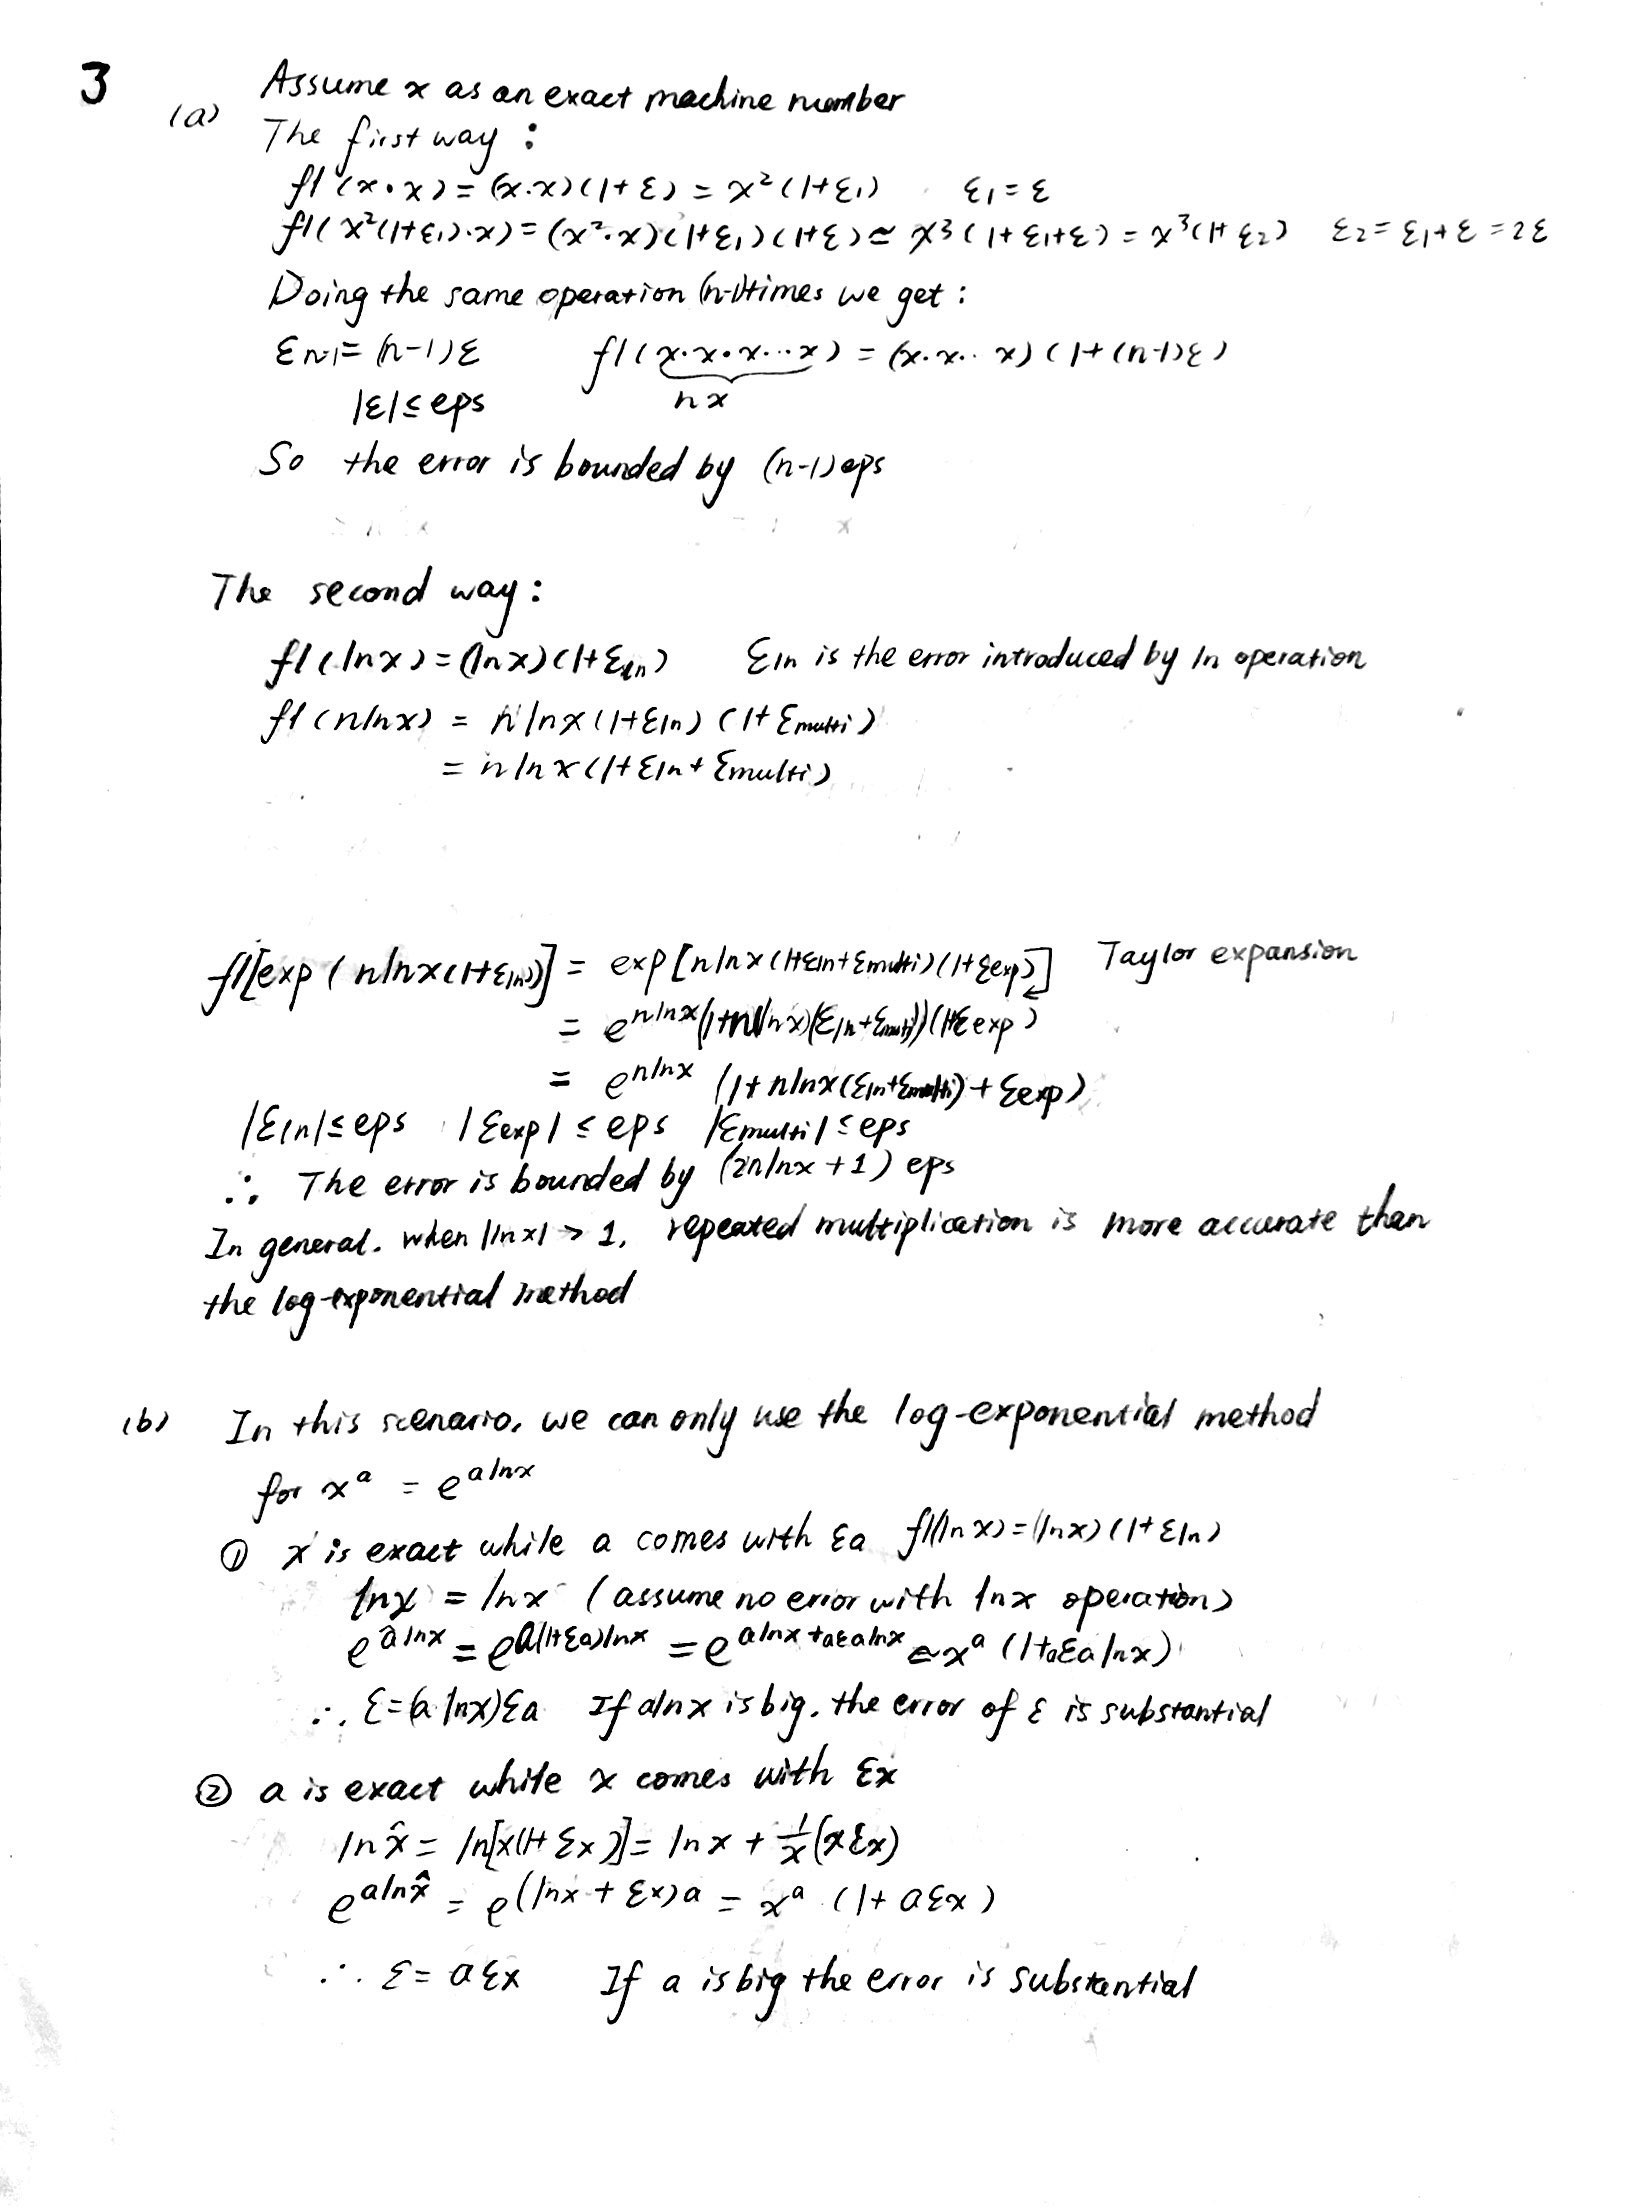 3
(a) Assume x as an exact machine number
The first way :
fl(x·x) = (x·x)(1+ε) = x²(1+ε₁)   ε₁=ε
fl(x²(1+ε₁)·x) = (x²·x)(1+ε₁)(1+ε) ≃ x³(1+ε₁+ε) = x³(1+ε₂)   ε₂=ε₁+ε=2ε
Doing the same operation (n-1) times we get :
εn-1=(n-1)ε   fl(x·x·x···x) = (x·x··x)(1+(n-1)ε)
|ε|≤eps   nx
So the error is bounded by (n-1)eps
The second way :
fl(lnx)=(lnx)(1+εln)   εln is the error introduced by ln operation
fl(nlnx) = nlnx(1+εln)(1+εmulti)
= nlnx(1+εln+εmulti)
fl[exp(nlnx(1+εln))] = exp[nlnx(1+εln+εmulti)(1+εexp)]   Taylor expansion
= e^nlnx(1+n(lnx)(εln+εmulti))(1+εexp)
= e^nlnx (1+nlnx(εln+εmulti)+εexp)
|εln|≤eps   |εexp|≤eps   |εmulti|≤eps
∴ The error is bounded by (2nlnx+1) eps
In general. when |lnx|>1, repeated multiplication is more accurate than
the log-exponential method
(b) In this scenario, we can only use the log-exponential method
for xᵃ = e^alnx
① x is exact while a comes with εa   fl(lnx)=(lnx)(1+εln)
lnx = lnx (assume no error with lnx operation)
e^âlnx = e^a(1+εa)lnx = e^alnx+aεalnx ≃ xᵃ(1+aεalnx)
∴ ε=(a lnx)εa   If alnx is big, the error of ε is substantial
② a is exact while x comes with εx
lnx̂ = ln[x(1+εx)] = lnx + 1/x(xεx)
e^alnx̂ = e^(lnx+εx)a = xᵃ (1+aεx)
∴ ε=aεx   If a is big the error is substantial